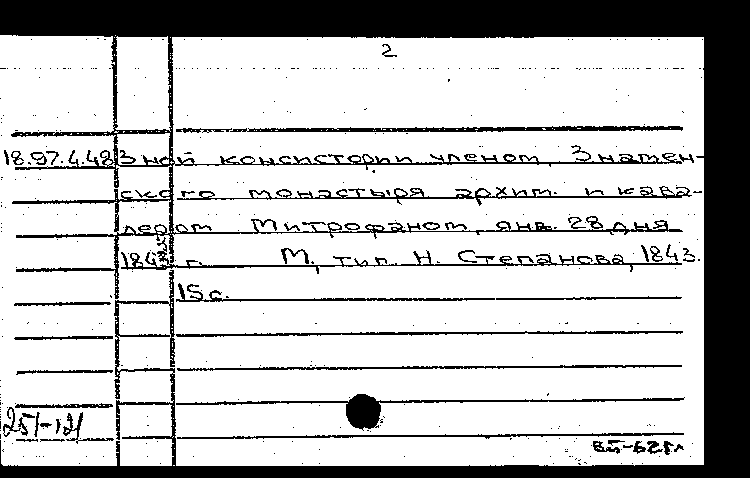 2
18.97.4.48 Зной консистории членом, Знамен-
ского монастыря архим. и кава-
лером Митрофаном, янв. 28 дня
1843 г. М, тип. Н. Степанова, 1843.
15 с.